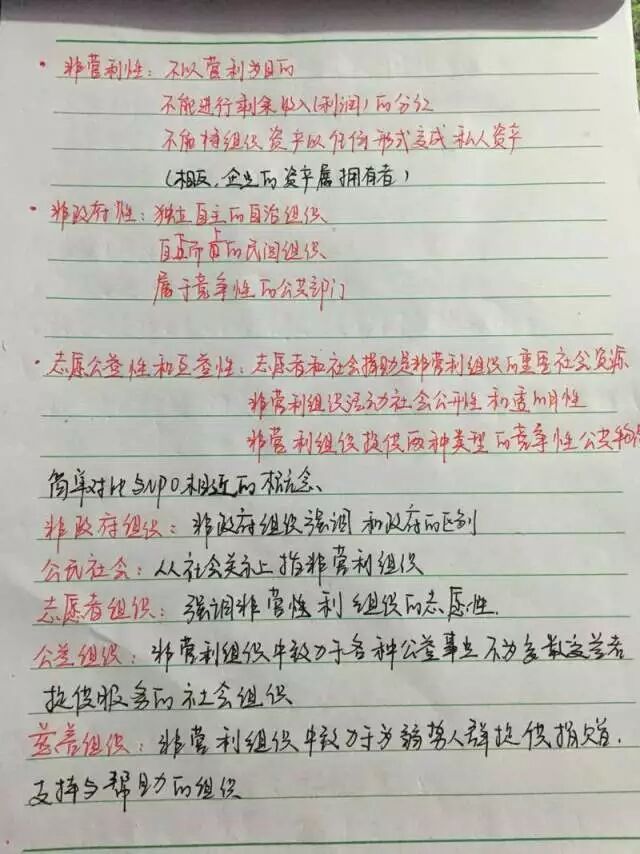 · 非营利性：不以营利为目的
不能进行剩余收入(利润)的分红
不能将组织资产以任何形式变成私人资产
(相反，企业的资产属拥有者)
· 非政府性：独立自主的自治组织
自下而上的民间组织
属于竞争性的公共部门
· 志愿公益性和互益性：志愿者和社会捐助是非营利组织的重要社会资源
非营利组织活动社会公开性和透明性
非营利组织提供两种类型的竞争性公共物
简单对比与NPO相近的概念
非政府组织：非政府组织强调和政府的区别
公民社会：从社会关系上指非营利组织
志愿者组织：强调非营性利组织的志愿性.
公益组织：非营利组织中致力于各种公益事业 不为多数受益者
提供服务的社会组织
慈善组织：非营利组织中致力于为弱势人群提供捐赠.
支持与帮助的组织